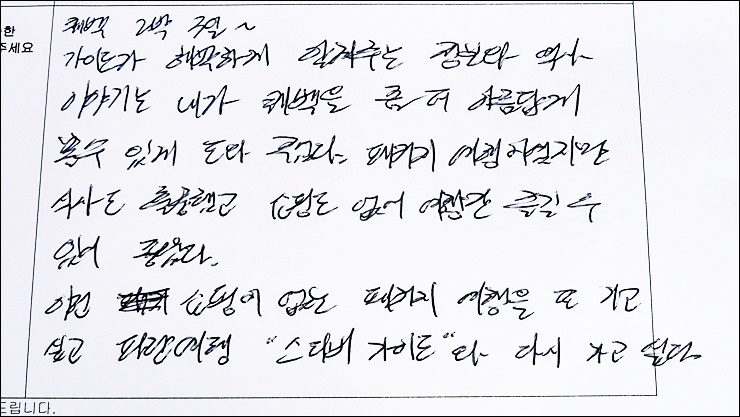 한
주세요
퀘벡 2박 3일~
가이드가 해박하게 알려주는 정보와 역사
이야기는 내가 퀘벡을 좀 더 아름답게
볼수 있게 도와 주었다. 패키지 여행이었지만
식사도 훌륭했고 쇼핑도 없어 여행만 즐길 수
있어 좋았다.
이런 쇼핑이 없는 패키지 여행을 또 가고
싶고 파란여행 "스티비 가이드"와 다시 가고 싶다.
드립니다.